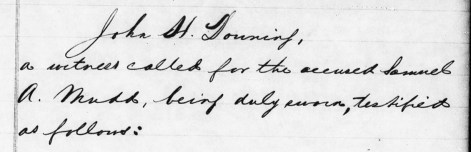 John H. Downing,
a witness called for the accused Samuel
A. Mudd, being duly sworn, testified
as follows: